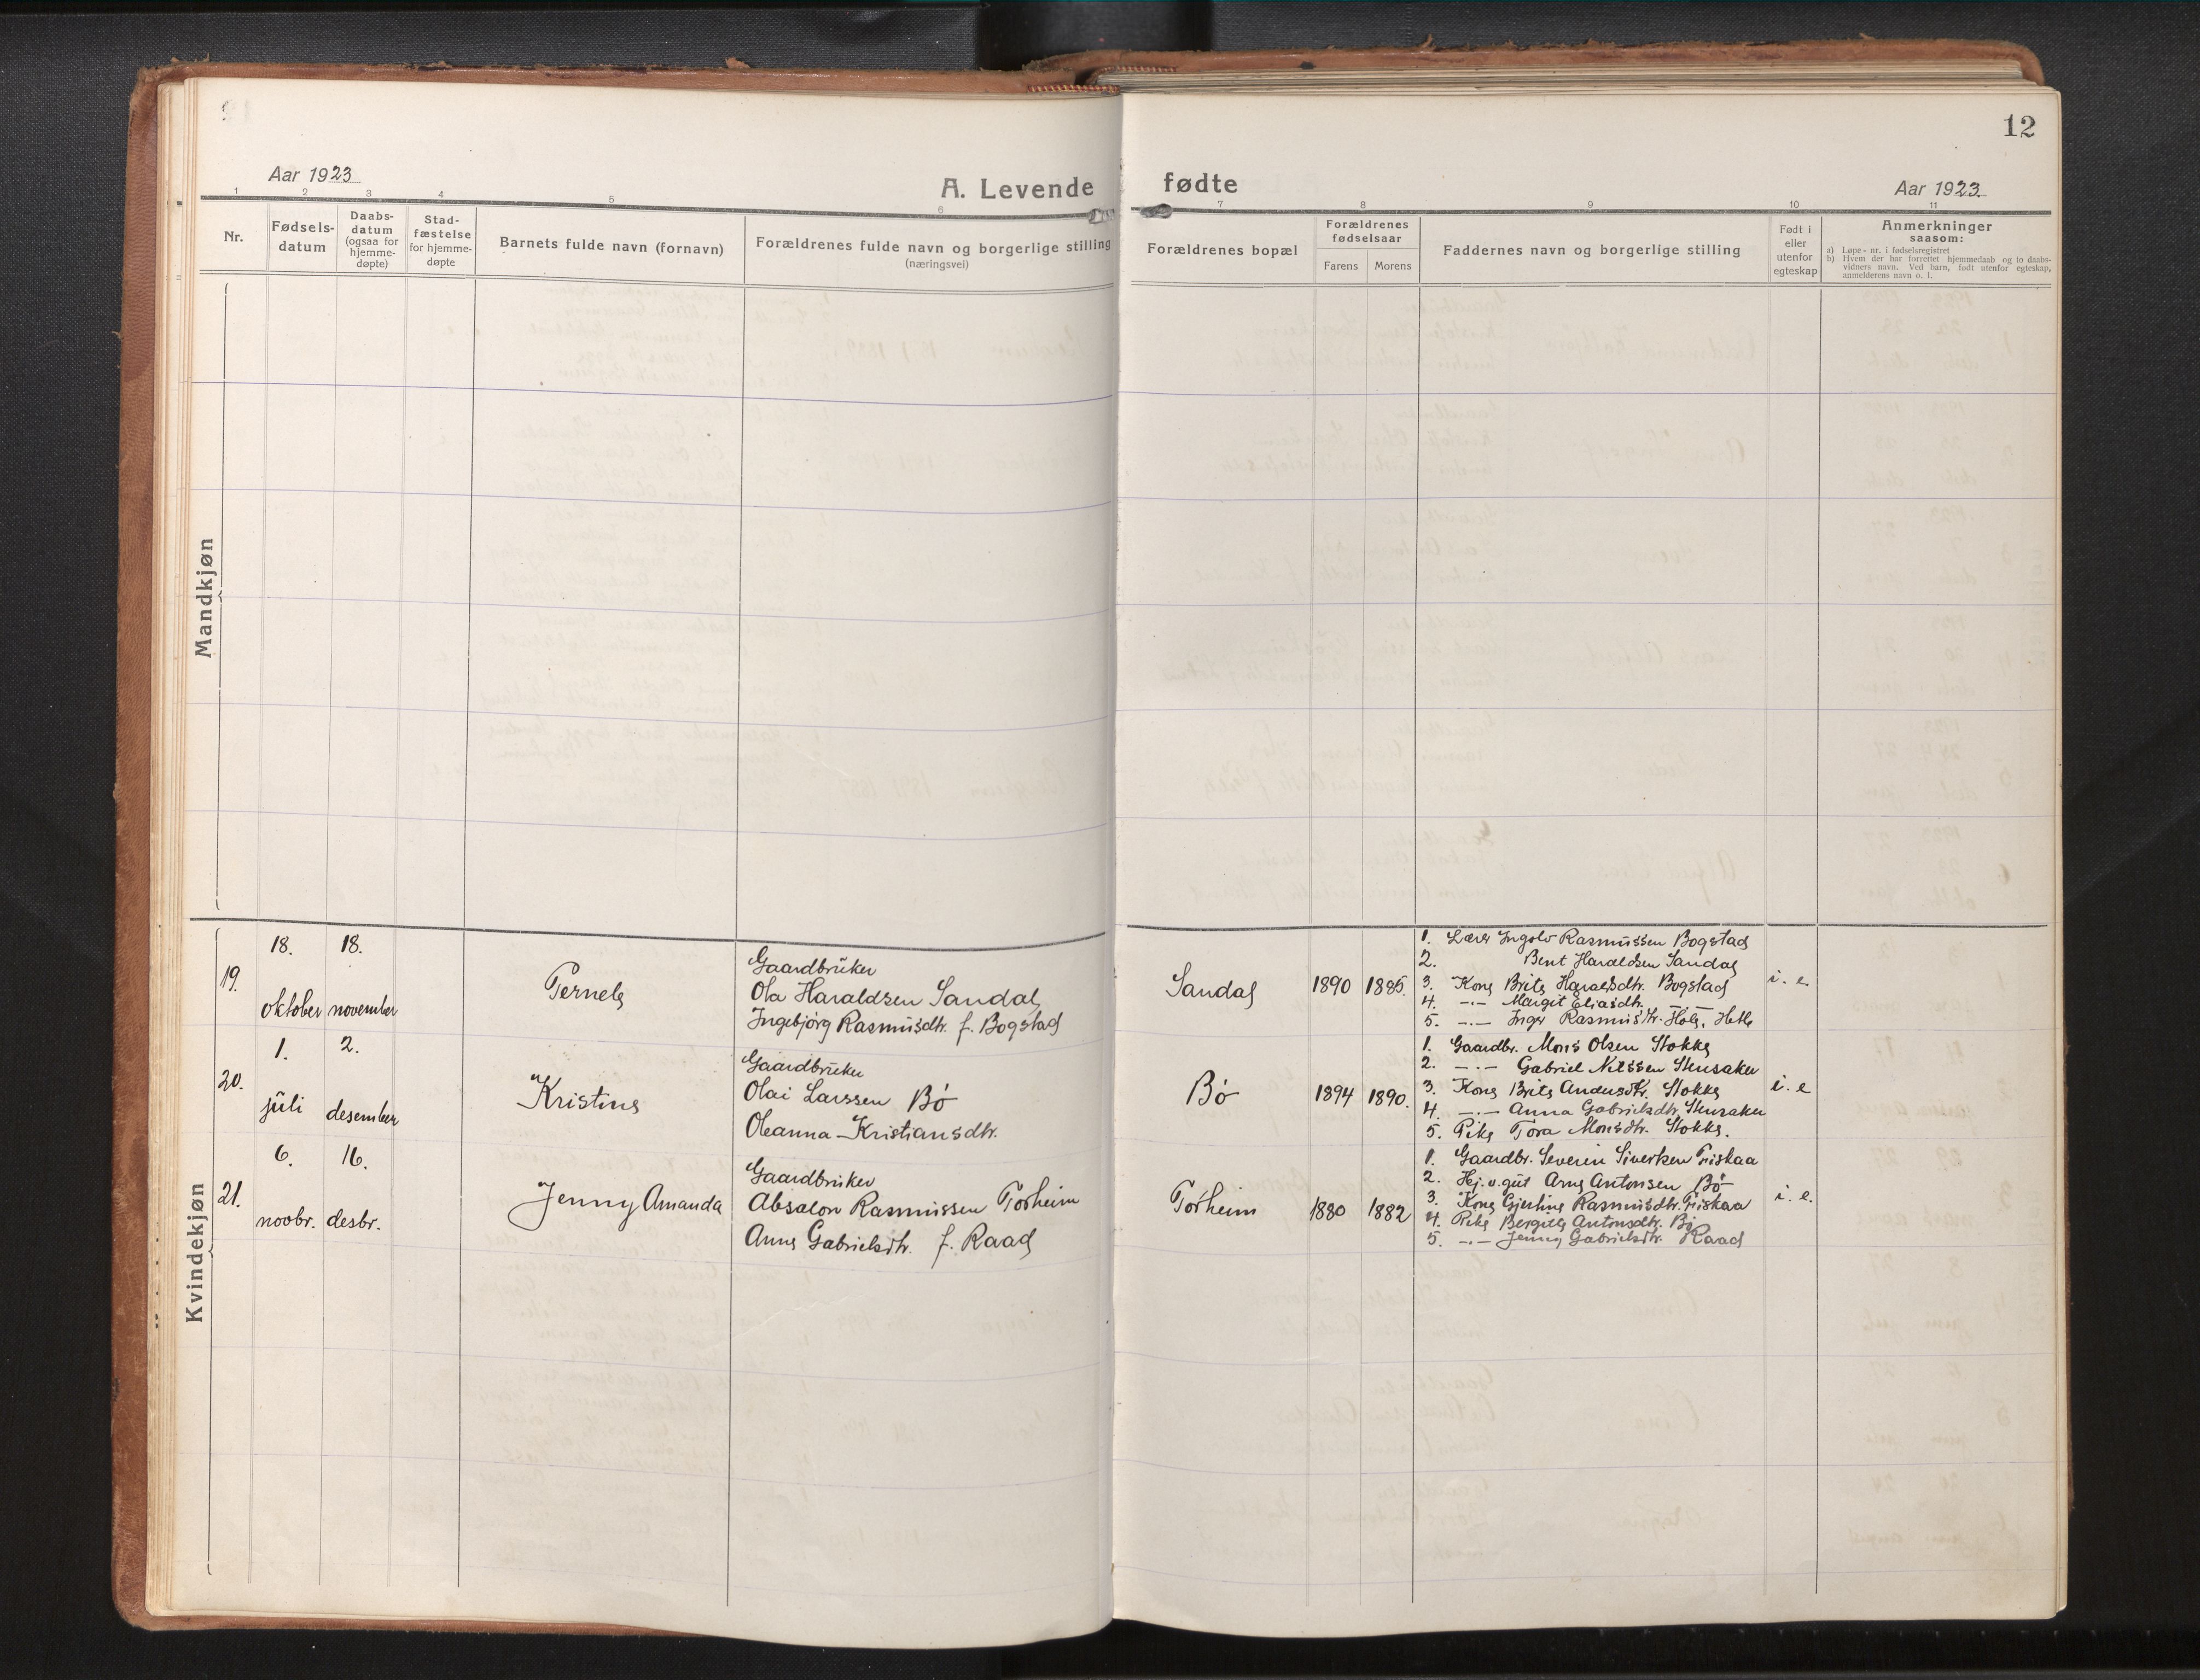 12
Aar 1923
A. Levende fødte
Aar 1923.
1 2 3 4 5 6 7 8 9 10 11
Nr.
Fødsels-
datum
Daabs-
datum
(ogsaa for
hjemme-
døpte)
Stad-
fæstelse
for hjemme-
døpte
Barnets fulde navn (fornavn)
Forældrenes fulde navn og borgerlige stilling
(næringsvei)
Forældrenes bopæl
Forældrenes
fødselsaar
Farens Morens
Faddernes navn og borgerlige stilling
Født i
eller
utenfor
egteskap
Anmerkninger
saasom:
a) Løpe-nr. i fødselsregistret
b) Hvem der har forrettet hjemmedaab og to daabs-
vidners navn. Ved barn, født utenfor egteskap,
anmelderens navn o. l.
Mandkjøn
Kvindekjøn
19.
18. oktober
18. november
Pernele
Gaardbruker
Ola Haraldsen Sandal
Ingebjørg Rasmusdtr. f. Bogstad
Sandal
1890 1885.
1. Lærer Ingolv Rasmussen Bogstad
2. Bent Haraldsen Sandal
3. Kone Brite Haraldsdtr. Bogstad
4. -.- Margit Eliasdtr.
5. -.- Inger Rasmusdtr. Hole, Hetle
i. e.
20.
1. juli
2. desember
Kristine
Gaardbruker
Olai Larssen Bø
Oleanna Kristiansdtr.
Bø
1894 1890.
1. Gaardbr. Mons Olsen Stokke
2. -.- Gabriel Nilssen Stensaker
3. Kone Brite Andersdtr. Stokke
4. -.- Anna Gabrielsdtr. Stensaker
5. Pike Tora Monsdtr. Stokke.
i. e
21.
6. novbr.
16. desbr.
Jenny Amanda
Gaardbruker
Absalon Rasmussen Torheim
Anne Gabrielsdtr. f. Raad
Torheim
1880 1882
1. Gaardbr. Severin Sivertsen Friskaa
2. Hj.v.gut Arne Antonsen Bø
3. Kone Gjertine Rasmusdtr. Friskaa
4. Pike Bergitte Antonsdtr. Bø
5. -.- Jenny Gabrielsdtr. Raad
i. e.